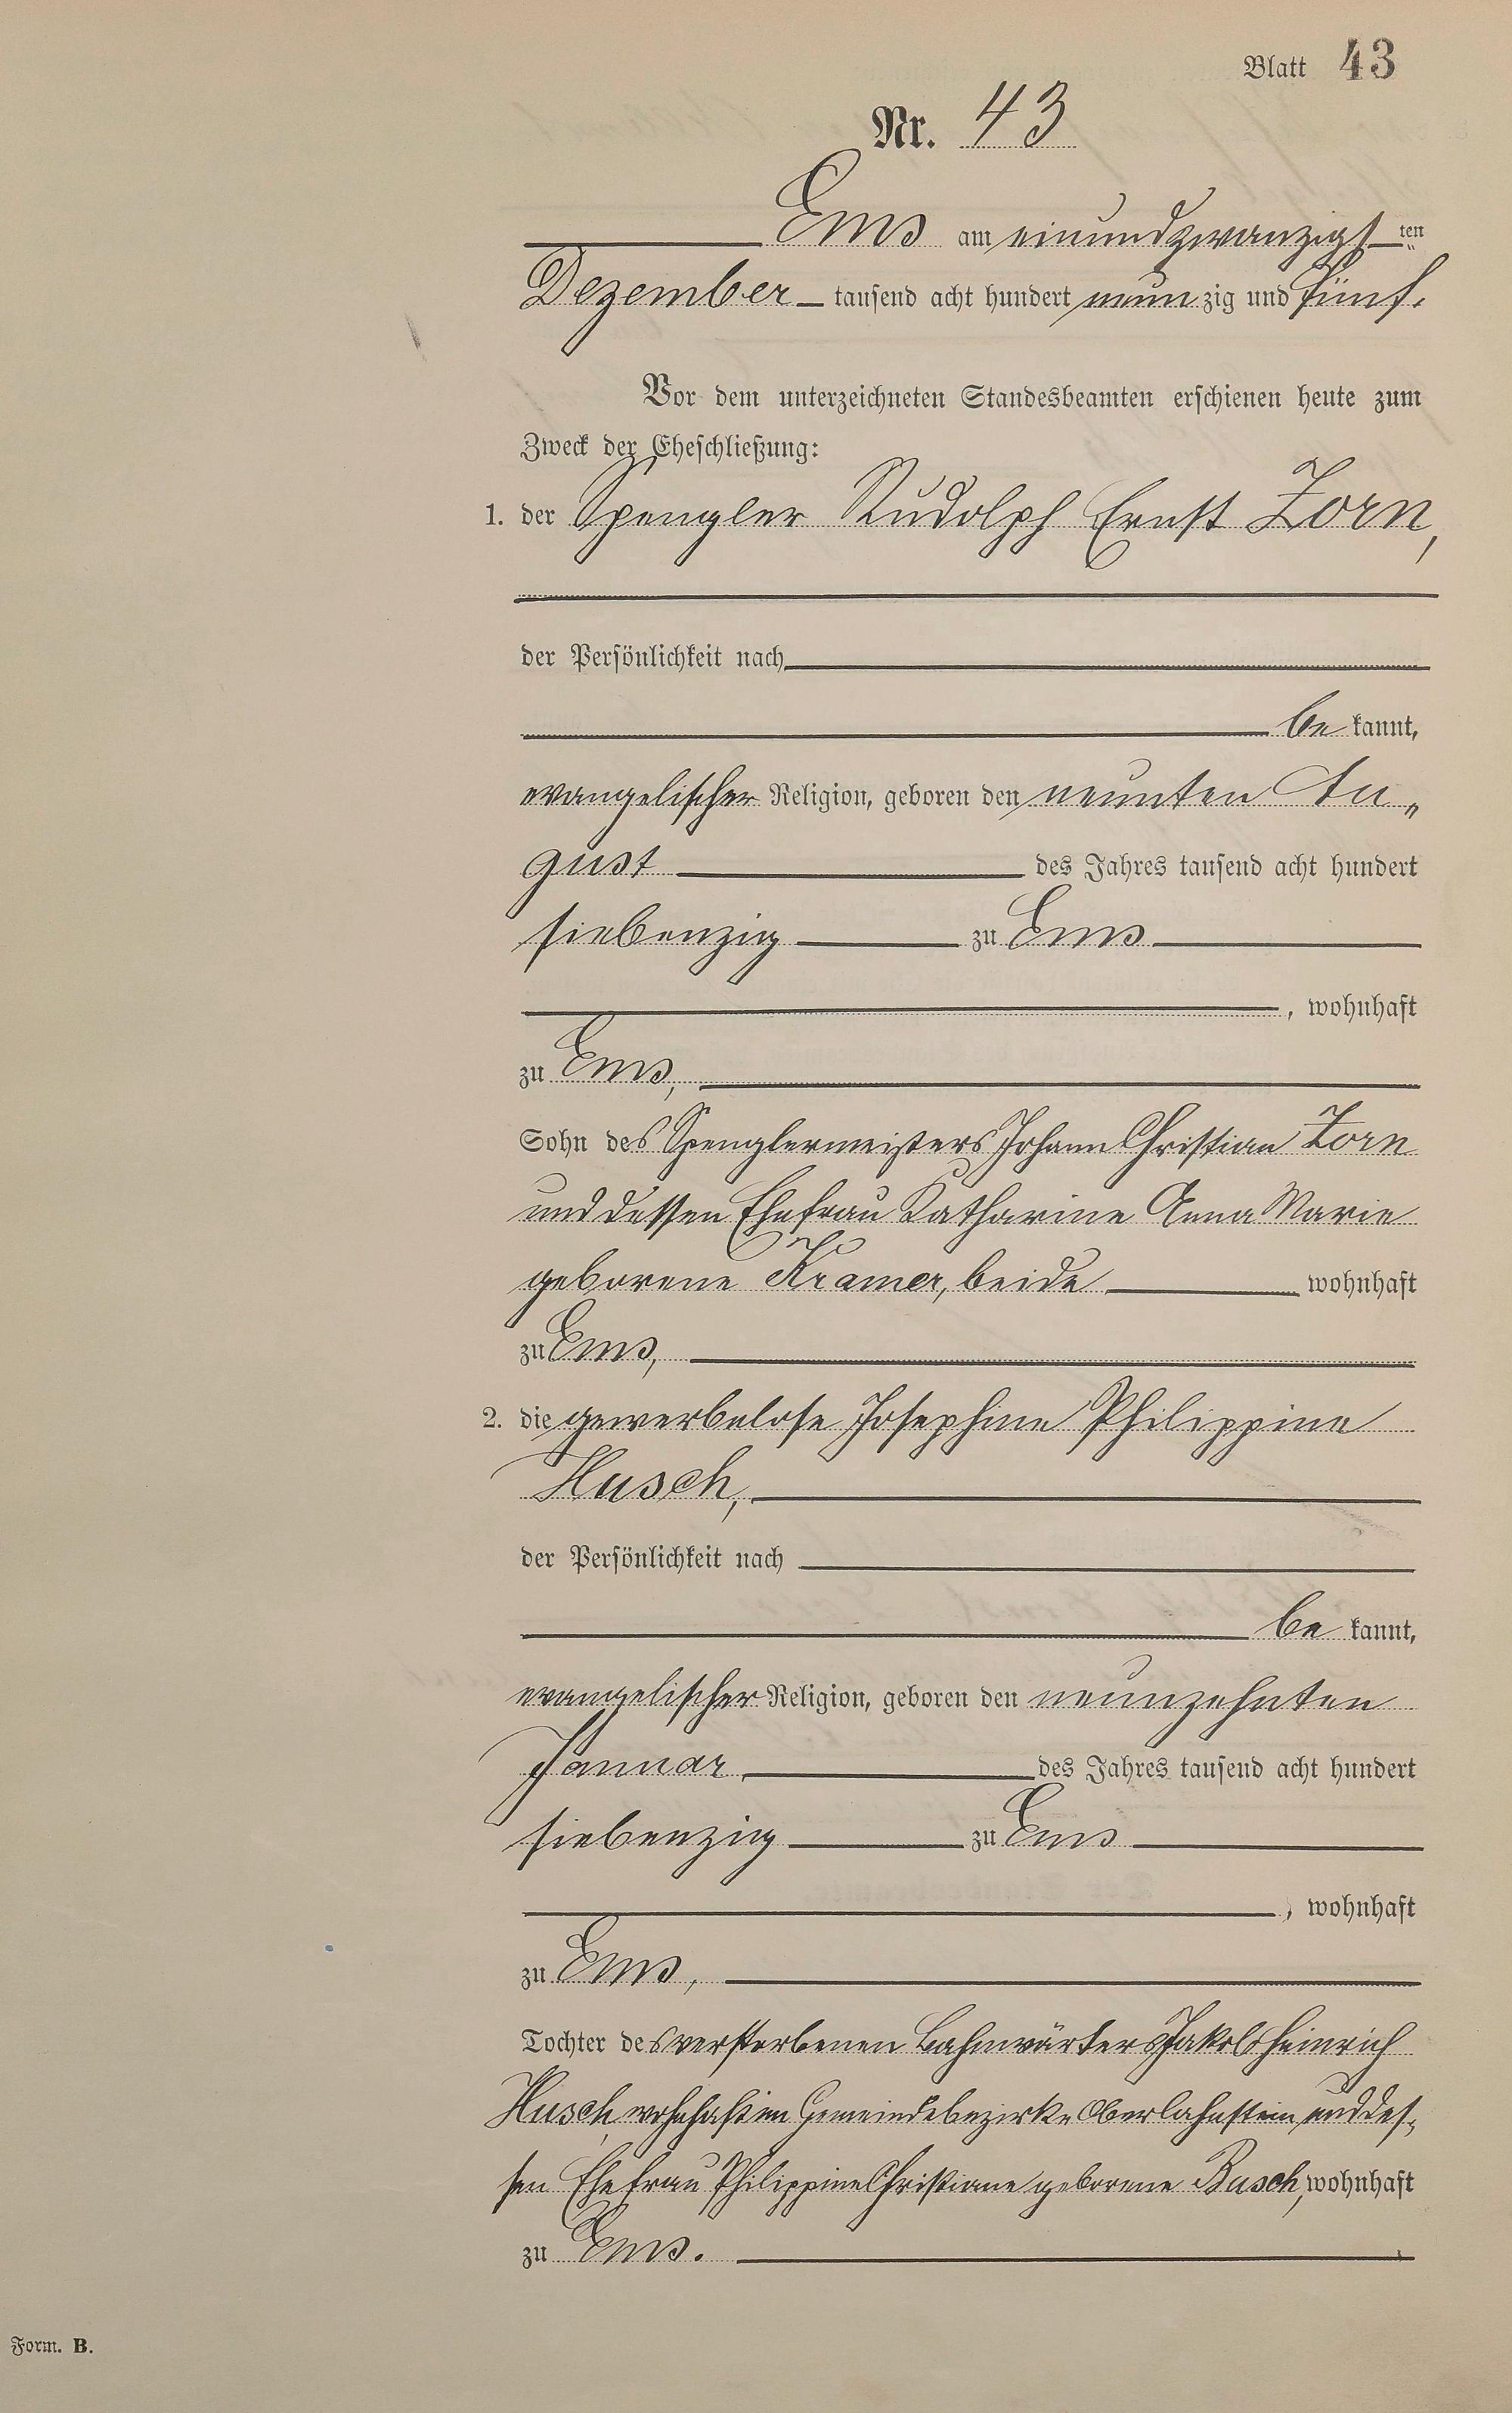 Blatt 43
Nr. 43
Ems am einundzwanzigsten
Dezember tausend acht hundert neunzig und fünf.
Vor dem unterzeichneten Standesbeamten erschienen heute zum
Zweck der Eheschließung:
1. der Spengler Rudolph Ernst Zorn,
der Persönlichkeit nach
bekannt,
evangelischer Religion, geboren den neunten Au„
gust des Jahres tausend acht hundert
siebenzig zu Ems
, wohnhaft
zu Ems,
Sohn des Spenglermeisters Johann Christian Zorn
und dessen Ehefrau Katharine Anna Marie
geborene Kramer, beide wohnhaft
zu Ems,
2. die gewerbelose Josephine Philippine
Husch,
der Persönlichkeit nach
bekannt,
evangelischer Religion, geboren den neunzehnten
Januar des Jahres tausend acht hundert
siebenzig zu Ems
, wohnhaft
zu Ems,
Tochter des verstorbenen Bahnwärters Jakob Heinrich
Husch, wohnhaft im Gemeindebezirke Oberlahnstein und des„
sen Ehefrau Philippine Christiane geborene Busch, wohnhaft
zu Ems.
Form. B.